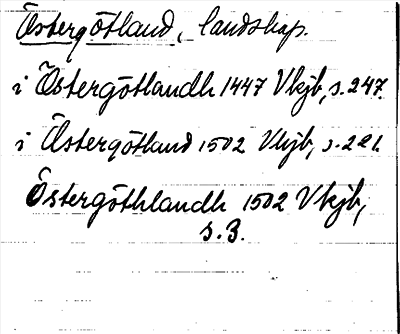 Östergötland, landskap.
i Östergötlandh 1447 Vkjb, s. 247.
i Östergötland 1502 Vkjb, s. 221.
Östergöthlandh 1502 Vkjb,
s. 3.